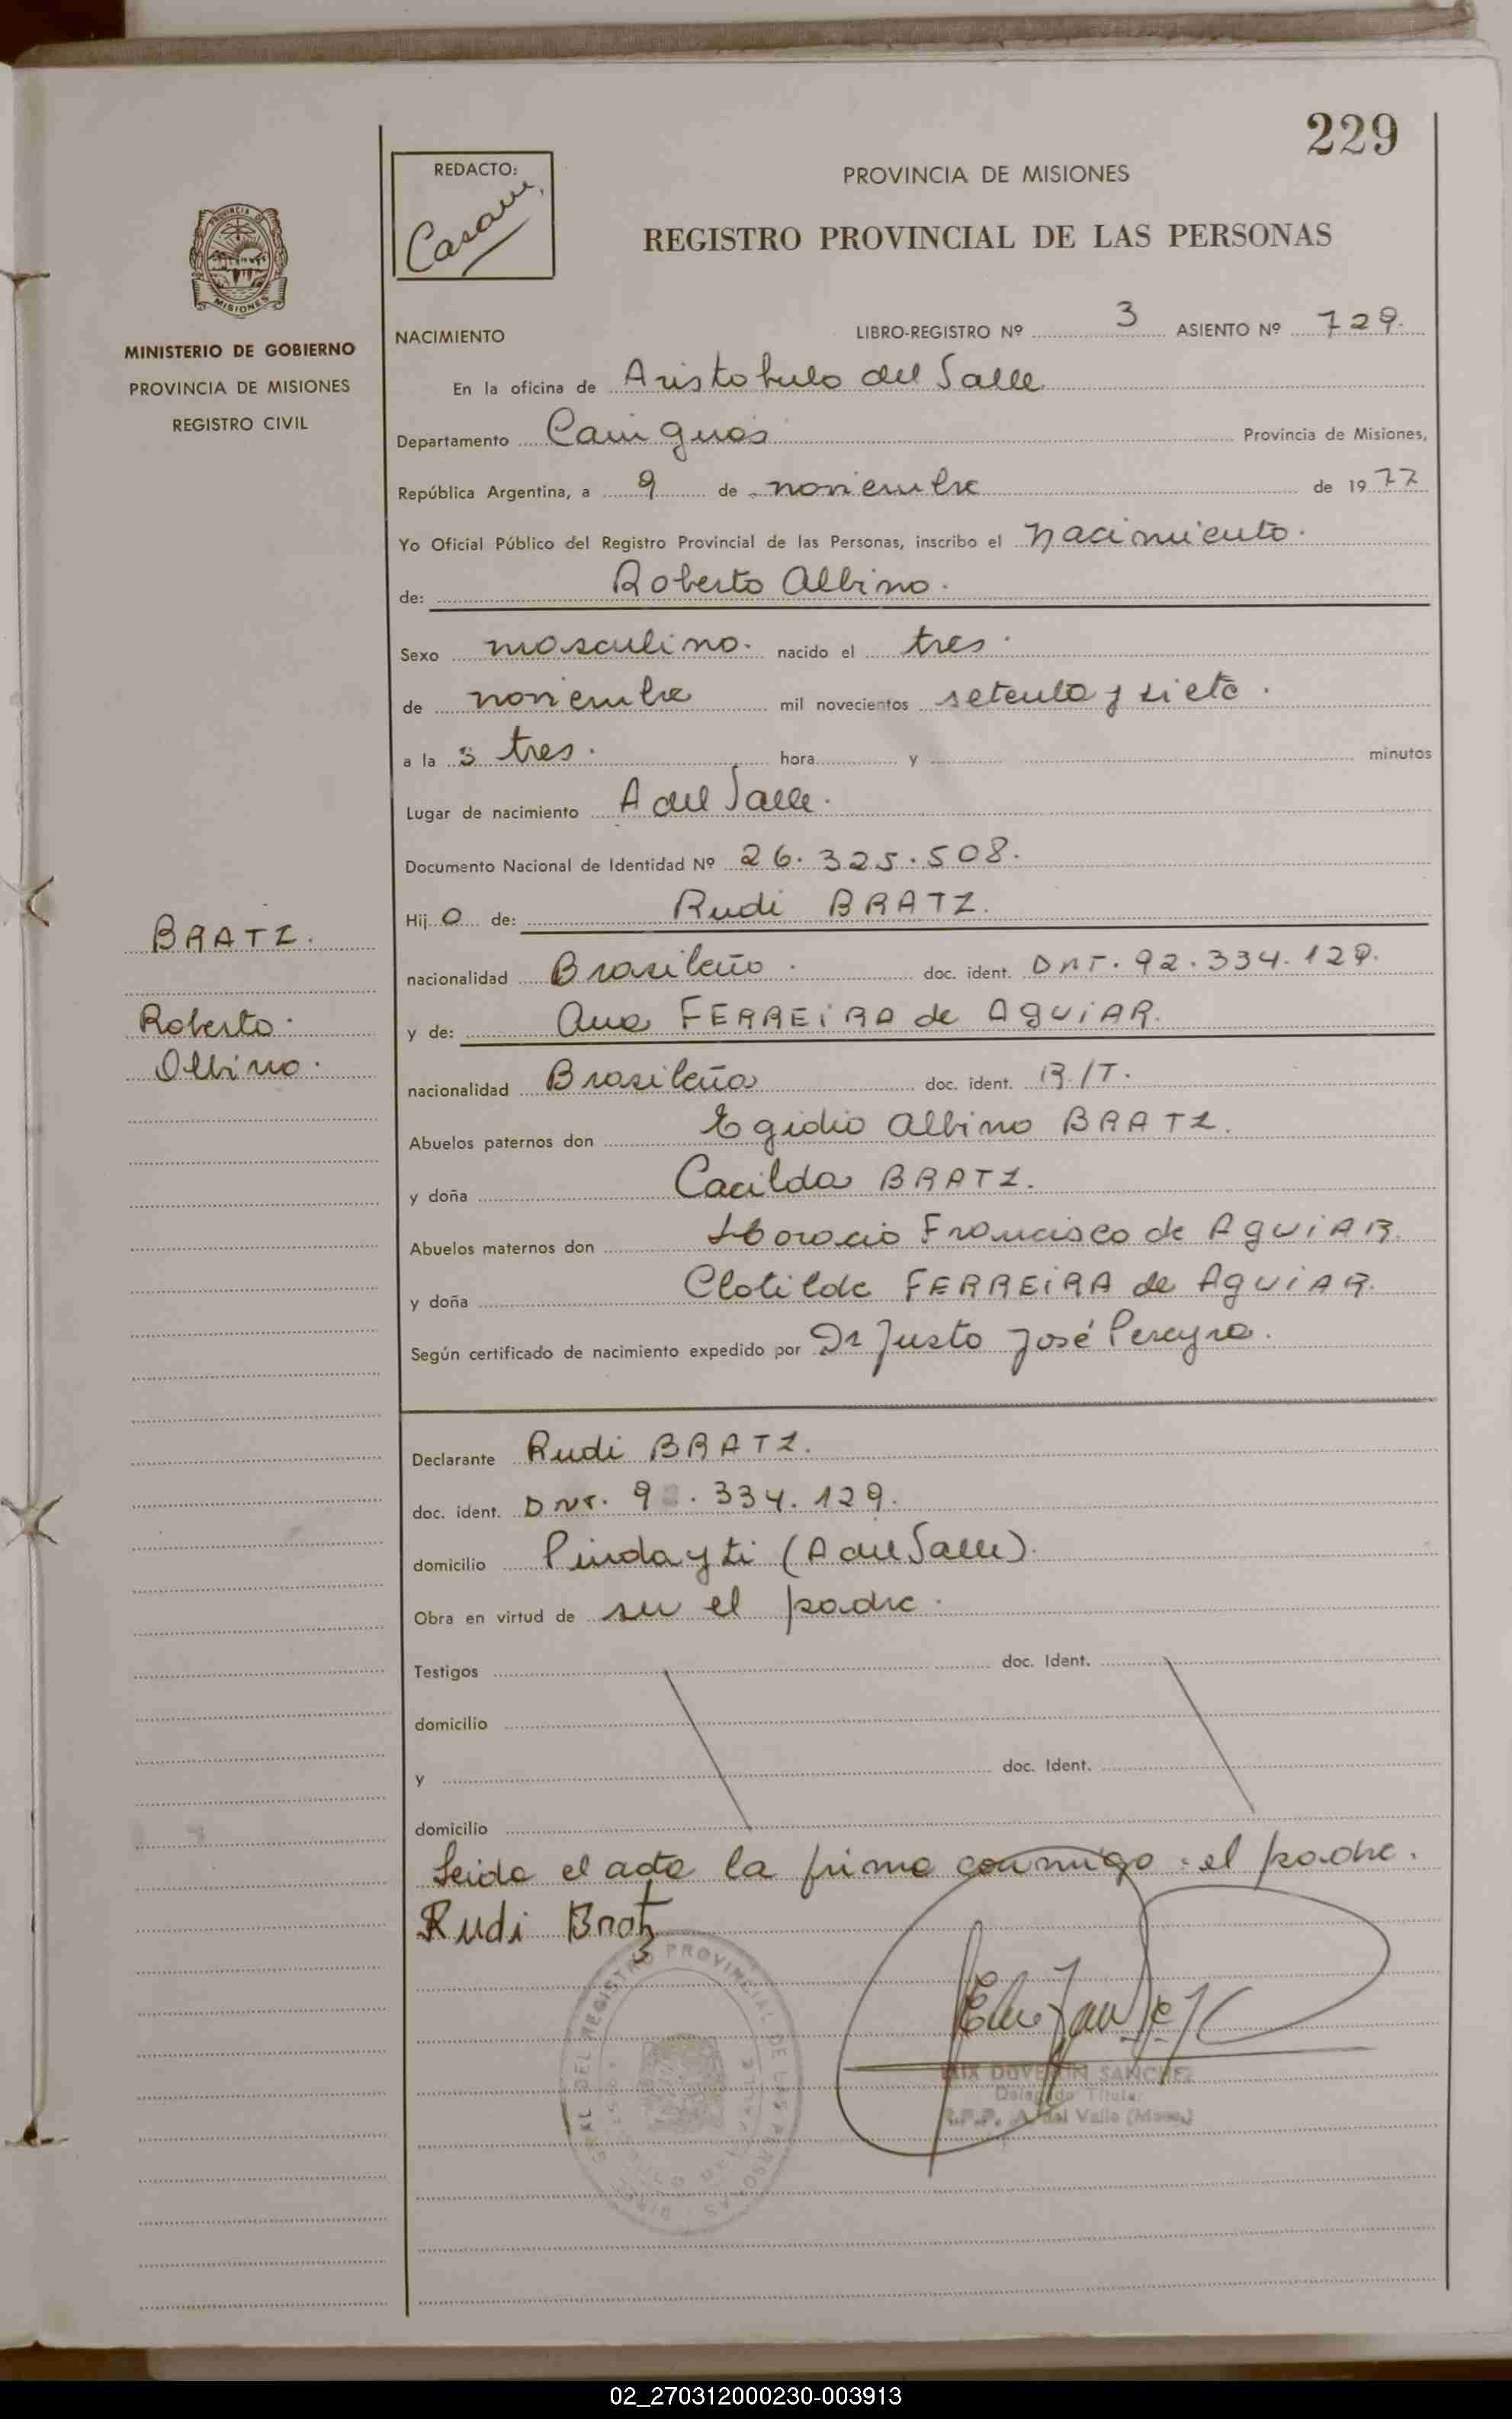 229
REDACTO:
PROVINCIA DE MISIONES
REGISTRO PROVINCIAL DE LAS PERSONAS
PROVINCIA DE
MISIONES
MINISTERIO DE GOBIERNO
PROVINCIA DE MISIONES
REGISTRO CIVIL
NACIMIENTO LIBRO-REGISTRO Nº 3 ASIENTO Nº 729.
En la oficina de Aristobulo del Valle
Departamento Cainguás Provincia de Misiones,
República Argentina, a 9 de noviembre de 1977
Yo Oficial Público del Registro Provincial de las Personas, inscribo el nacimiento.
de: Roberto Albino.
Sexo masculino. nacido el tres.
de noviembre mil novecientos setenta y siete.
a la s tres. hora y minutos
Lugar de nacimiento A del Valle.
Documento Nacional de Identidad Nº 26.325.508.
Hij o de: Rudi BRATZ.
BRATZ.
nacionalidad Brasileño. doc. ident. DNI. 92.334.129.
Roberto.
y de: Ana FERREIRA de AguiAR.
Albino.
nacionalidad Brasileña doc. ident. R/T.
Abuelos paternos don Egidio Albino BRATZ.
y doña Cacilda BRATZ.
Abuelos maternos don Horacio Francisco de AguiAR.
y doña Clotilde FERREiRA de AguiAR.
Según certificado de nacimiento expedido por Dr Justo José Pereyra.
Declarante Rudi BRATZ.
doc. ident. DNI. 9 . 334. 129.
domicilio Pindayti (A del Valle).
Obra en virtud de ser el padre.
Testigos doc. Ident.
domicilio
y doc. Ident.
domicilio
Leida el acta la firma conmigo: el padre.
Rudi Bratz
REGISTRO PROVINCIAL DE LAS PERSONAS
SANCHEZ
Delegado Titular
R.P.P. A. del Valle (Mnes.)
02_270312000230-003913